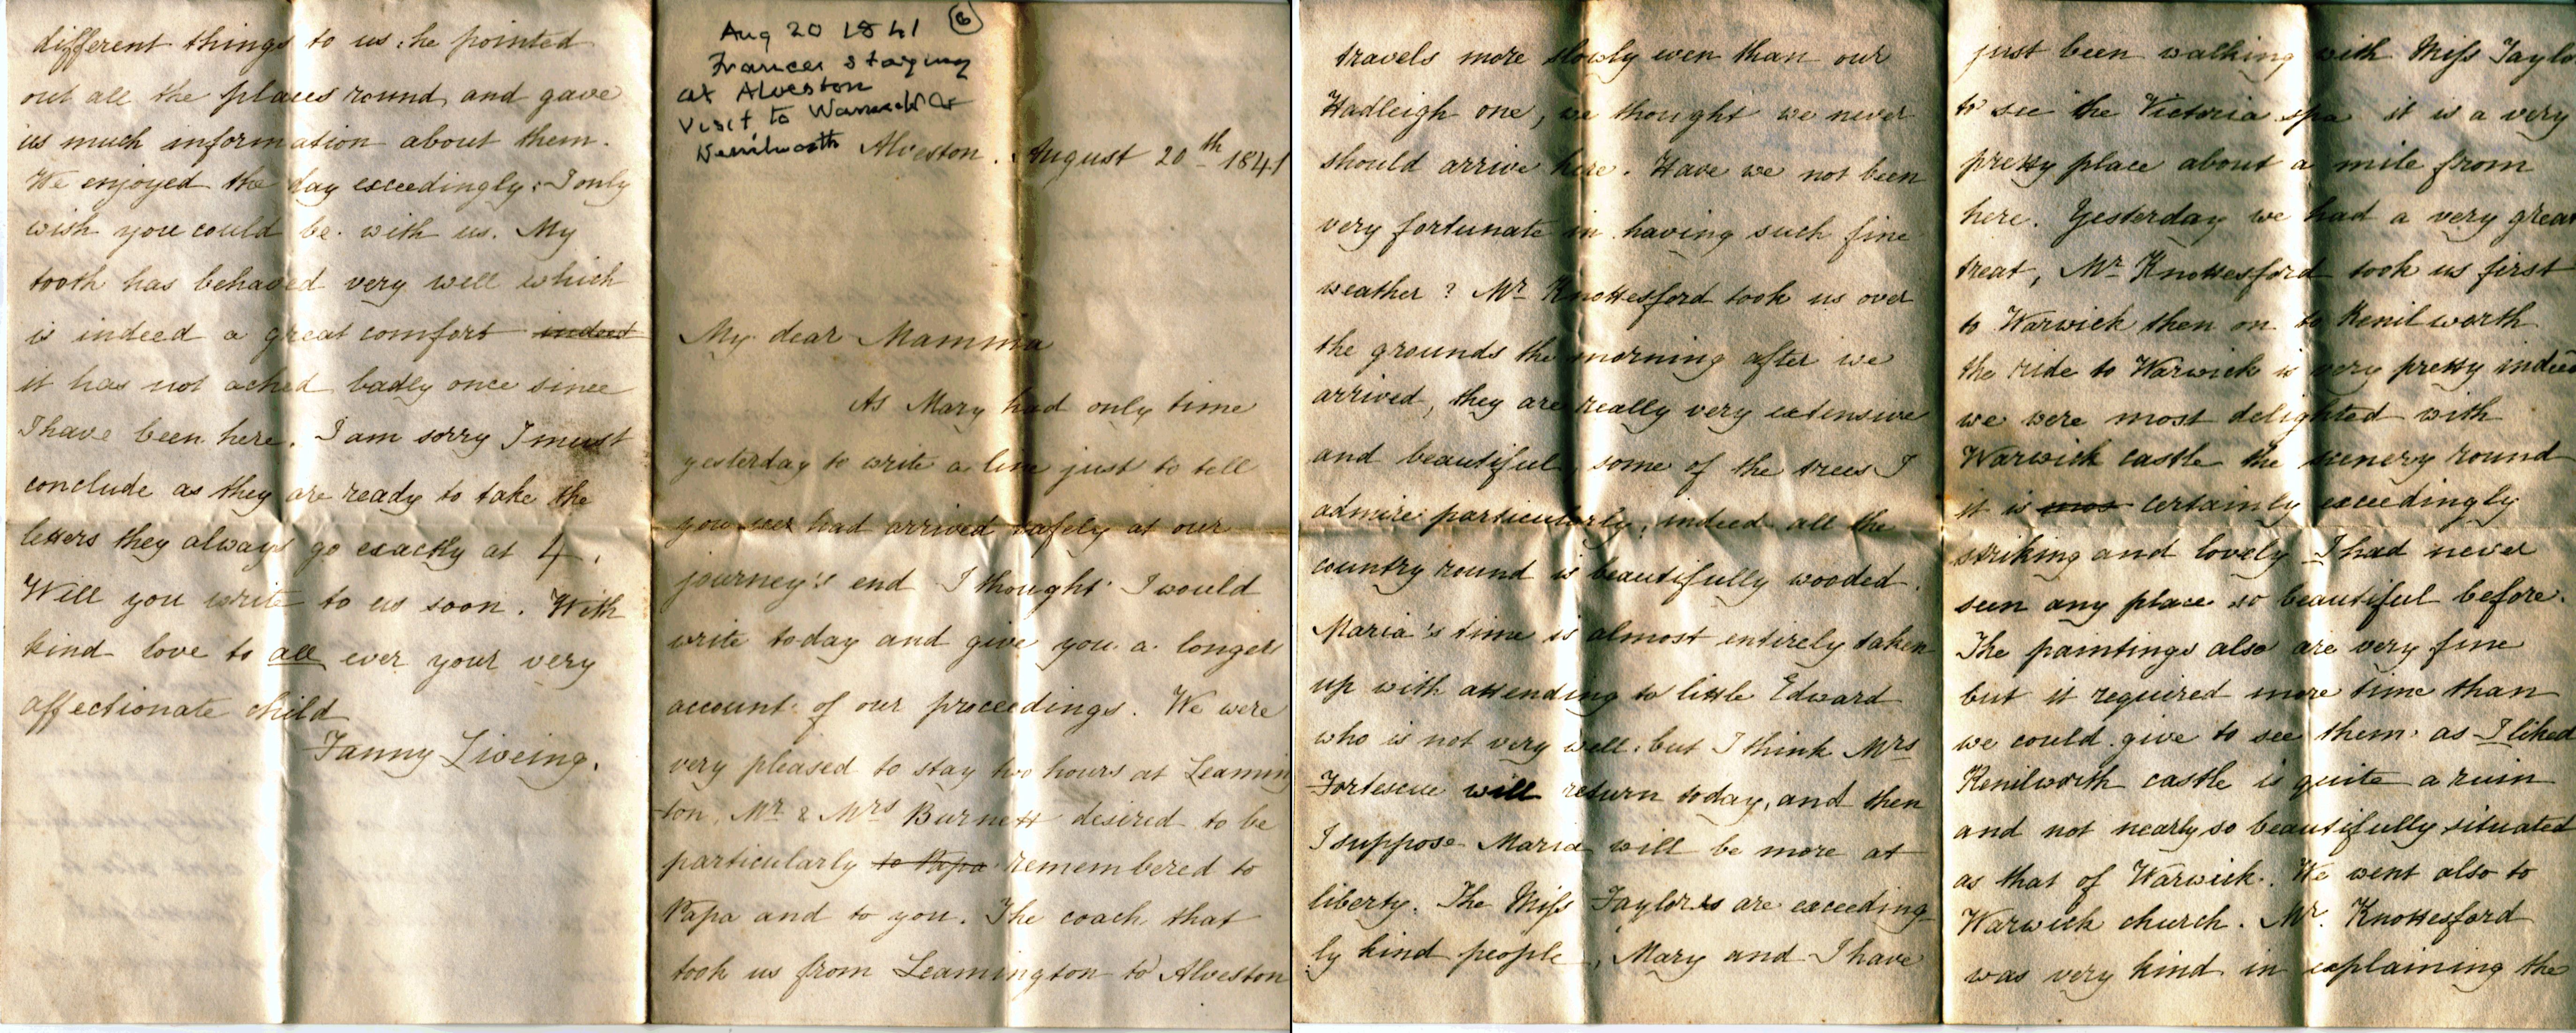 Aug 20 1841 (6)
Frances staying
at Alveston
Visit to Warwick &
Kenilworth
Alveston. August 20th 1841
My dear Mamma
As Mary had only time
yesterday to write a line just to tell
you we had arrived safely at our
journey's end I thought I would
write today and give you a longer
account of our proceedings. We were
very pleased to stay two hours at Leaming
ton, Mr & Mrs Burnett desired to be
particularly to Papa remembered to
Papa and to you. The coach that
took us from Leamington to Alveston
travels more slowly even than our
Hadleigh one, we thought we never
should arrive here. Have we not been
very fortunate in having such fine
weather? Mr Knottesford took us over
the grounds the morning after we
arrived, they are really very extensive
and beautiful, some of the trees I
admire particularly; indeed all the
country round is beautifully wooded.
Maria's time is almost entirely taken
up with attending to little Edward
who is not very well. but I think Mrs
Fortescue will return today, and then
I suppose Maria will be more at
liberty. The Miss Taylors are exceeding-
ly kind people, Mary and I have
just been walking with Miss Taylo
to see the Victoria spa it is a very
pretty place about a mile from
here. Yesterday we had a very great
treat, Mr Knottesford took us first
to Warwick then on to Kenilworth
the ride to Warwick is very pretty indeed
we were most delighted with
Warwick castle the scenery round
it is mos certainly exceedingly
striking and lovely I had never
seen any place so beautiful before.
The paintings also are very fine
but it required more time than
we could give to see them as I liked
Kenilworth castle is quite a ruin
and not nearly so beautifully situated
as that of Warwick. We went also to
Warwick church. Mr. Knottesford
was very kind in explaining the
different things to us: he pointed
out all the places round and gave
us much information about them.
We enjoyed the day exceedingly: I only
wish you could be with us. My
tooth has behaved very well which
is indeed a great comfort indeed
it has not ached badly once since
I have been here. I am sorry I must
conclude as they are ready to take the
letters they always go exactly at 4.
Will you write to us soon. With
kind love to all ever your very
affectionate child
Fanny Liveing.